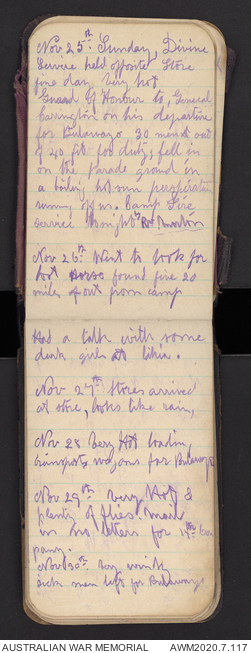 Nov 25th Sunday, Divine
Service held opposite Store
fine day very hot
Guard Of Honour to, General
Carrington on his departure
for Bulawayo 30 men out
of 40 fit for duty, fell in
on the parade ground in
a boiling hot sun perspiration
running of us. Camp Fire
service tonight
Nov 26th Went to look for
lost Horse found five 20
miles of out from camp
Had a talk with some
dark girls at
Nov 27th Stores arrived
at store, looks like rain,
Nov 28 Very Hot loading
transports wagons for Bulawayo
Nov 29th Very Hot &
plenty of flies mail
in no letters for 4th Com
pany.
Nov 30th very windy
sick men left for Bulawayo
AUSTRALIAN WAR MEMORIAL
AWM2020.7.117